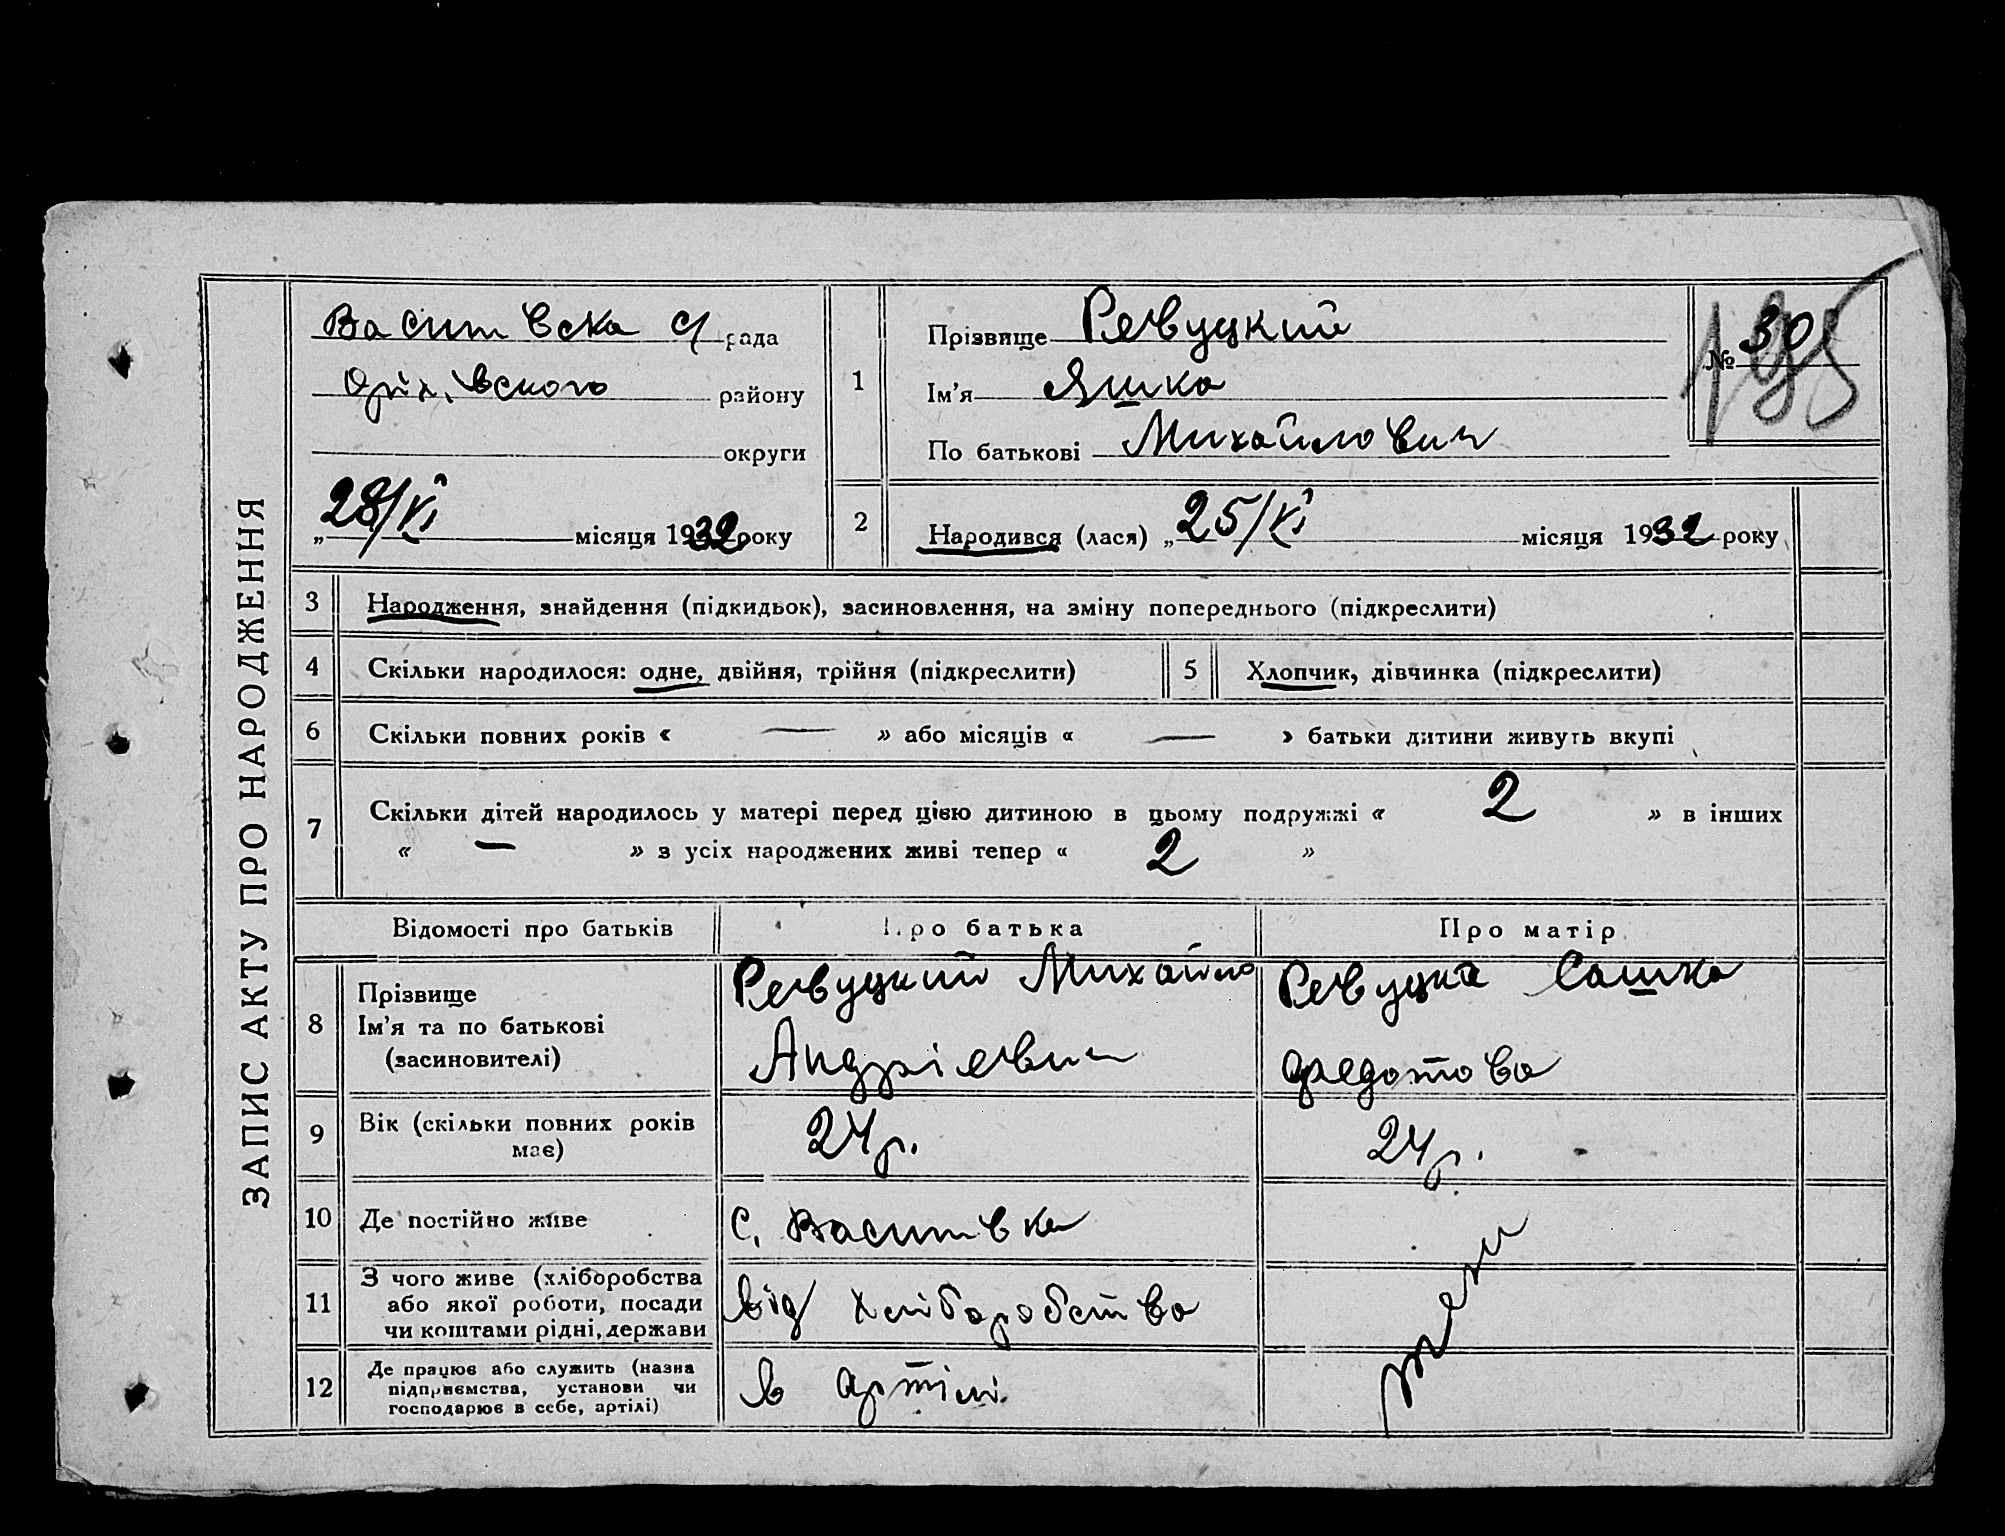 ЗАПИС АКТУ ПРО НАРОДЖЕННЯ
Василівска с/рада
Оріхівського району
округи
„28/VI місяця 1932 року
1
Прізвище Ревуцкий
Ім'я Яшка
По батькові Михайлович
№ 30
195
2
Народився (лася) „25/VI місяця 1932 року
3
Народження, знайдення (підкидьок), засиновлення, на зміну попереднього (підкреслити)
4
Скільки народилося: одне, двійня, трійня (підкреслити)
5
Хлопчик, дівчинка (підкреслити)
6
Скільки повних років « — » або місяців « — » батьки дитини живуть вкупі
7
Скільки дітей народилось у матері перед цією дитиною в цьому подружжі « 2 » в інших
« — » з усіх народжених живі тепер « 2 »
Відомості про батьків
Про батька
Про матір
8
Прізвище
Ім'я та по батькові
(засиновителі)
Ревуцкий Михайло
Андрієвич
Ревуцка Сашка
Федотова
9
Вік (скільки повних років
має)
24 р.
24 р.
10
Де постійно живе
с. Василівка
11
З чого живе (хліборобства
або якої роботи, посади
чи коштами рідні, держави
від хліборобства
12
Де працює або служить (назва
підприємства, установи чи
господарює в себе, артілі)
в артілі